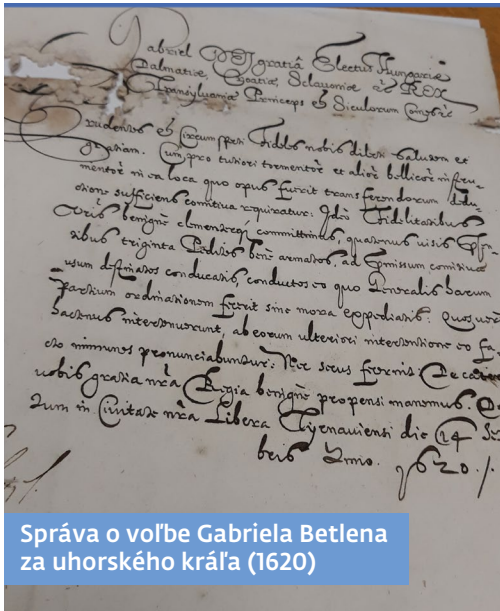 Gabriel DEI gratiâ Electus Hungariæ
Dalmatiæ, Croatiæ, Sclavoniæ REX
Transylvaniæ Princeps et Siculorum Comes
Prudentes et Circumspecti Fideles nobis dilecti salutem et
gratiam. Cum pro tutiori tormentorũ et aliorũ bellicorũ instru-
mentorũ in ea loca quo opus fuerit transferendorum
ctione sufficiens comitiva requiratur. Ideo Fidelitatibus
Vris benigne clementerq committimus, quatenus visis
tibus triginta Pedites bene armatos, ad præmissum comitivæ
usum destinatos conducatis, conductos eo quo Generalis harum
Partium ordinationem fecerit sine mora expediatis. Quos vero
hactenus intertenuerunt, ab eorum ulteriori intertentione eo fa
cto immunes pronunciabuntur. Nec secus fecerint. De cætero
vobis gratia nrâ Regia benigne propensi manemus.
tum in Civitate nrâ Libera Tyrnaviensi die 14
bris Anno. 1620.
Správa o voľbe Gabriela Betlena
za uhorského kráľa (1620)